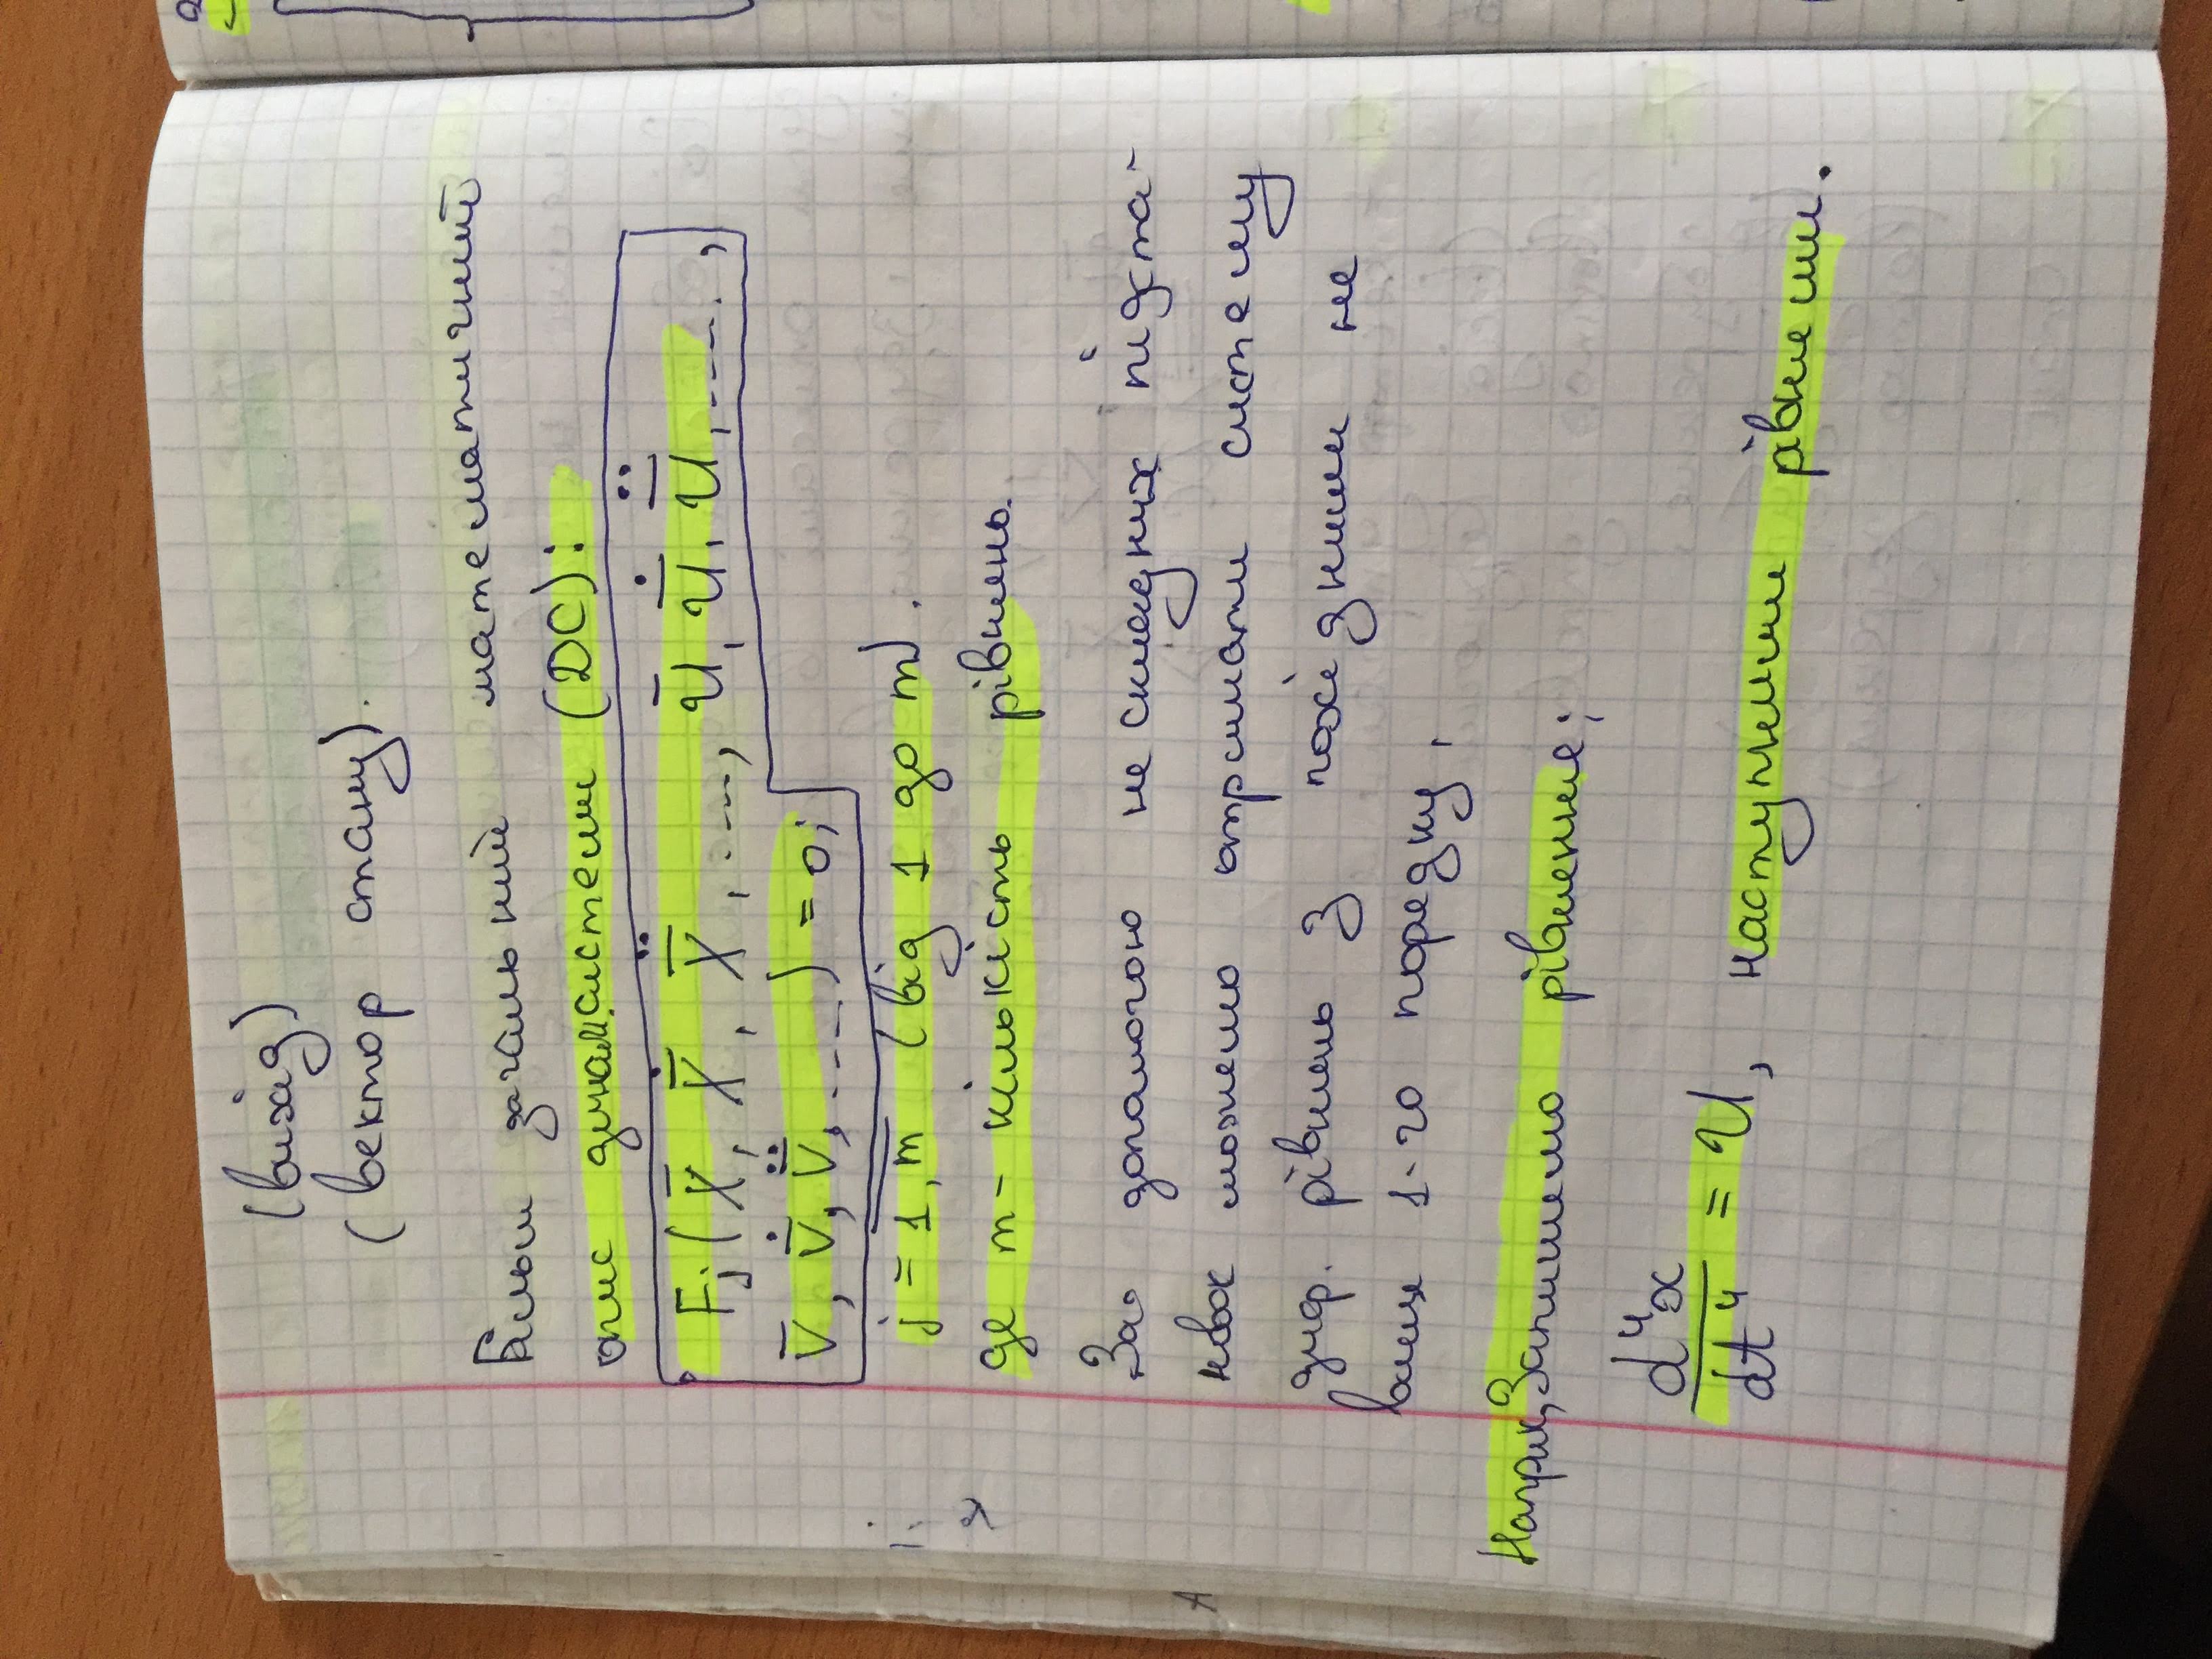 (вихід)
(вектор стану).
Більш загальний математичний
опис динам.системи (DC):
Fj(X̄, Ẋ̄, Ẍ̄, ...., Ū, U̇̄, Ǖ, ....,
V̄, V̇̄, V̈̄, ....) = 0;
j = 1,m (від 1 до m).
де m - кількість рівнянь.
За допомогою не складних підста-
новок можемо отримати систему
диф. рівнянь з похідними не
вище 1-го порядку,
Наприк, Запишемо рівняння;
d⁴x/dt⁴ = U, наступними рівняями.